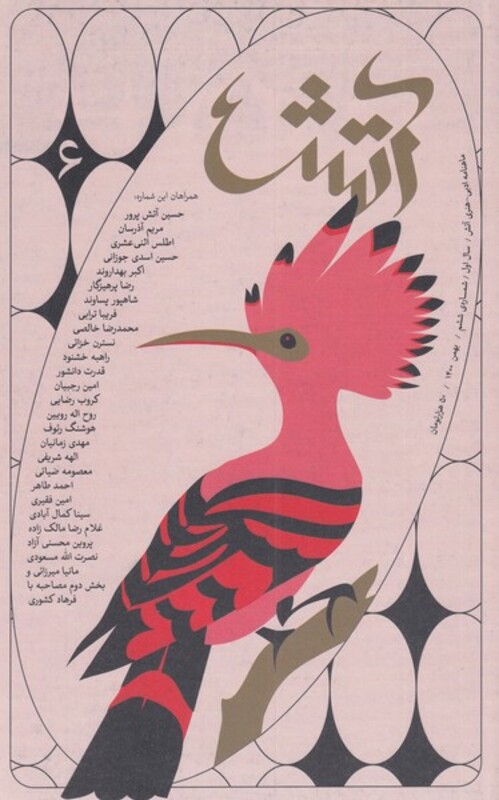 آتش
۶
ماهنامه ادبی-هنری آتش / سال اول / شماره‌ی ششم / بهمن ۱۴۰۰ / ۵۰ هزارتومان
همراهان این شماره:
حسین آتش پرور
مریم آذرسان
اطلس اثنی‌عشری
حسین اسدی جوزانی
اکبر بهداروند
رضا پرهیزگار
شاهپور پساوند
فریبا ترابی
محمدرضا خالصی
نسترن خزائی
راهبه خشنود
قدرت دانشور
امین رجبیان
کروب رضایی
روح اله رویین
هوشنگ رئوف
مهدی زمانیان
الهه شریفی
معصومه ضیائی
احمد طاهر
امین فقیری
سینا کمال آبادی
غلام رضا مالک زاده
پروین محسنی آزاد
نصرت الله مسعودی
مانیا میرزائی و
بخش دوم مصاحبه با
فرهاد کشوری